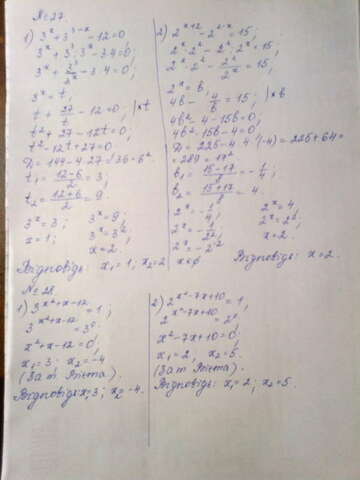 №27.
1) 3^x + 3^{3-x} - 12 = 0;
3^x + 3^3 · 3^{-x} - 3·4 = 0;
3^x + 3^3/3^x - 3·4 = 0;
3^x = t;
t + 27/t - 12 = 0; | ×t
t² + 27 - 12t = 0;
t² - 12t + 27 = 0
D = 144 - 4·27 = √36 = 6²
t₁ = (12-6)/2 = 3;
t₂ = (12+6)/2 = 9.
3^x = 3; 3^x = 9;
x = 1; 3^x = 3²;
x = 2.
Відповідь: x₁ = 1; x₂ = 2
2) 2^{x+2} - 2^{2-x} = 15;
2^x · 2² - 2² · 2^{-x} = 15;
2^x · 2² - 2²/2^x = 15;
2^x = b,
4b - 4/b = 15; | ×b
4b² - 4 - 15b = 0;
4b² - 15b - 4 = 0;
D = 225 - 4·4·(-4) = 225 + 64 =
= 289 = 17²
b₁ = (15-17)/8 = -1/4;
b₂ = (15+17)/8 = 4.
2^x = -1/4; 2^x = 4;
2^x = -1/2²; 2^x = 2²;
2^x = -2^{-2} x = 2
x ∈ ∅ Відповідь: x = 2.
№28
1) 3^{x²+x-12} = 1;
3^{x²+x-12} = 3⁰;
x² + x - 12 = 0;
x₁ = 3; x₂ = -4
(За т. Вієта).
Відповідь: x₁ = 3; x₂ = -4.
2) 2^{x²-7x+10} = 1;
2^{x²-7x+10} = 2⁰;
x² - 7x + 10 = 0;
x₁ = 2; x₂ = 5.
(За т. Вієта).
Відповідь: x₁ = 2; x₂ = 5.